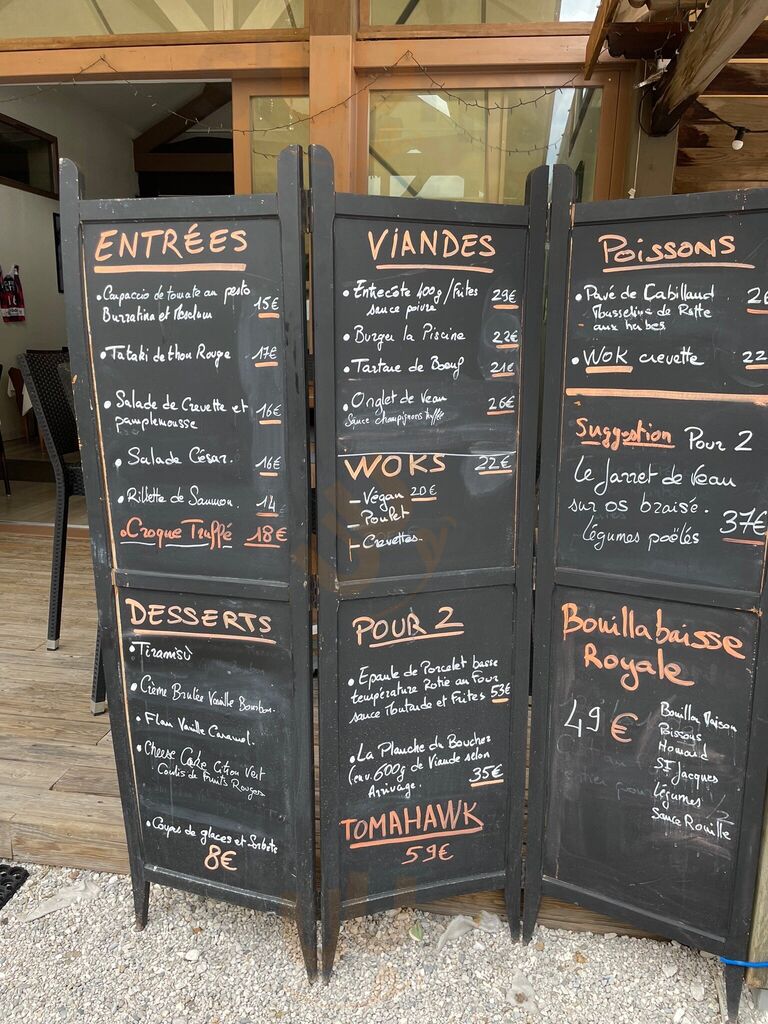 ENTRÉES
• Carpaccio de tomate au pesto
Burratina et 15€
• Tataki de thon Rouge 17€
• Salade de Crevette et
pamplemousse 16€
• Salade César. 16€
• Rillette de Saumon. 14
• Croque Truffé 18€
DESSERTS
• Tiramisù
• Crème Brulée Vanille Bourbon.
• Flan Vanille Caramel.
• Cheese Cake Citron Vert
Coulis de Fruits Rouges
• Coupes de glaces et Sorbets
8€
VIANDES
• Entrecôte 400g/Frites 29€
sauce poivre
• Burger la Piscine 22€
• Tartare de Boeuf 21€
• Onglet de Veau 26€
Sauce champignons truffe
WOKS 22€
- Végan 20€
- Poulet
- Crevettes.
POUR 2
• Epaule de Porcelet basse
température Rotie au Four
sauce Moutarde et Frites 53€
• La Planche du Boucher
(env. 600g de Viande selon
Arrivage. 35€
TOMAHAWK
59€
POISSONS
• Pavé de Cabillaud 26
Mousseline de Ratte
aux herbes
• WOK crevette 22
Suggestion Pour 2
Le Jarret de Veau
sur os braisé.
37€
légumes poêlés
Bouillabaisse
Royale
49€
Bouillon Maison
Poissons
Homard
St Jacques
légumes
Sauce Rouille